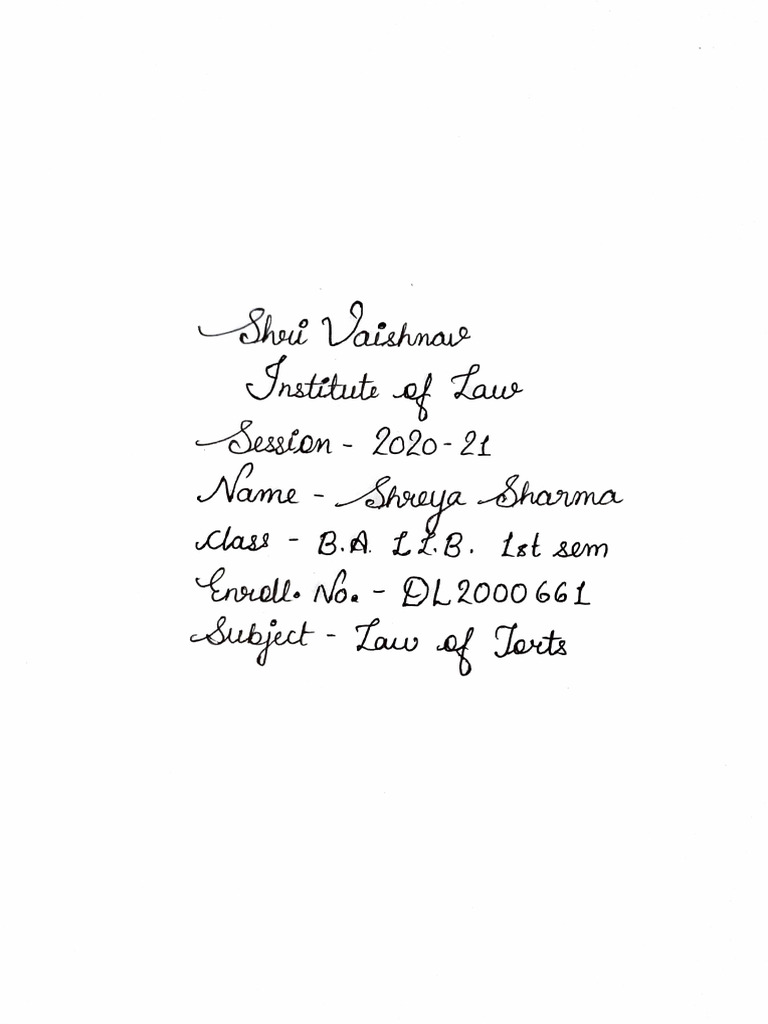 Shri Vaishnav
Institute of Law
Session - 2020-21
Name - Shreya Sharma
Class - B.A. L L.B. 1st sem
Enroll. No. - DL2000661
Subject - Law of Torts